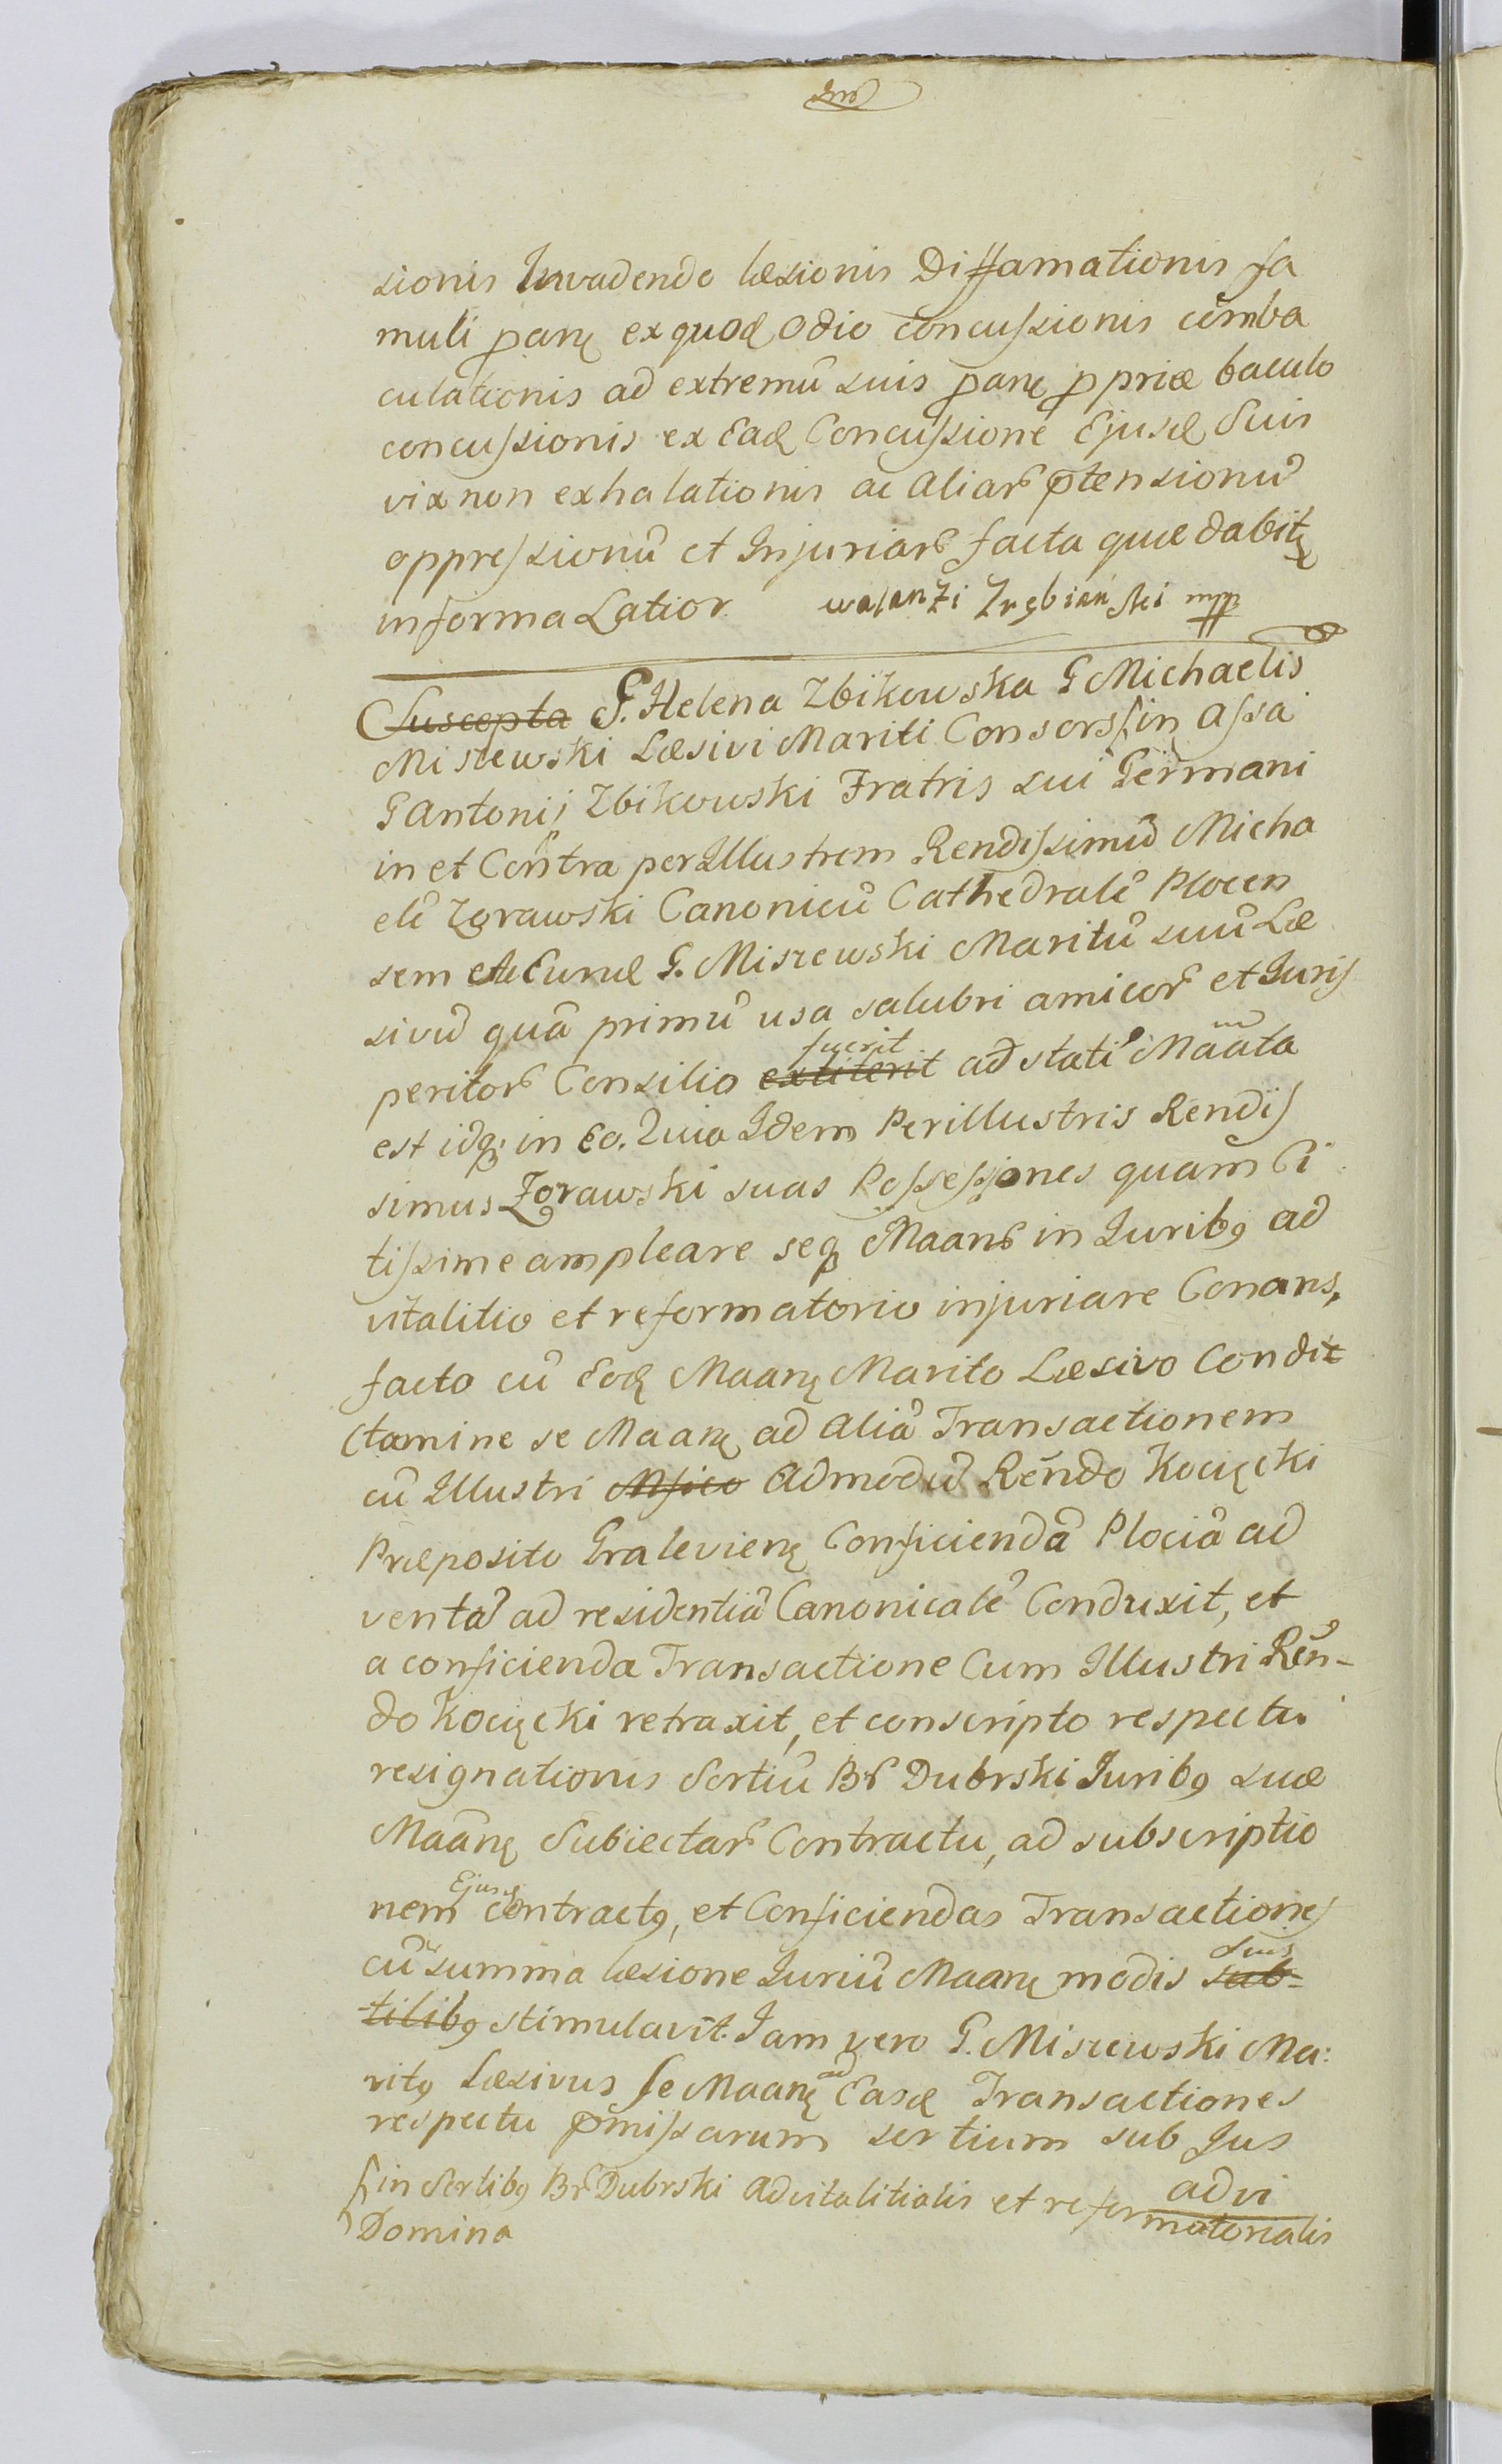 sionis Invadendo læsionis Diffamationis fa
muli pang ex quođ odio concussionis comba
culationis ad extremū suis pang ppriæ baculo
concussionis ex Eađ Concussione Ejusđ Suis
vix non exhalationis ac aliar ptensionū
oppressionū et Injuriar facta quæ dabitę
informa Latior walanti mpp
Suscepta G. Helena Zbikowska G Michaelis
Miszewski Læsivi Mariti Consors in assā
G Antonij Zbikowski Fratris sui Germani
in et Contra perIllustrem Rendissimū Micha
elē Zorawski Canonicū Cathedralē Plocen
sem Ac Eunđ G. Miszewski Maritū suū Læ
sivū quā primū usa salubri amicor et Juris
peritor Consilio extiterit fuerit ad stati Maāta
est idq; in Eo. Quia Idem Perillustris Rendis
simus Zorawski suas Possessiones quam Ci
tissime ampleare seq Maanr in Juribq ad
vitalitio et reformatorio injuriare Conans,
facto cū Eođ Maang Marito Læsivo Condi
ctamine se Maang ad aliā Transactionem
cū Illustri Mfico Admodū Rendo Kocięcki
Præposito Gralevieng Conficiendā Plociā ad
ventā ad residentiā Canonicalē Conduxit, et
a conficienda Transactione Cum Illustri Rēn-
do Kocięcki retraxit, et conscripto respectu
resignationis Sortiū Br Dubrski Juribq suæ
Maāng Subiectar Contractu, ad subscriptio
nem Ejusđ contractq, et Conficiendas Transactiones
cū summa læsione Juriū Maang modis sub- suis
tilibq stimulavit. Jam vero G. Miszewski Ma:
ritq Læsivus se Maang ad Easđ Transactiones
respectu pmissarum sortium sub Jus
advi
in Sortibq Br Dubrski advitalitialis et reformatorialis
Domina